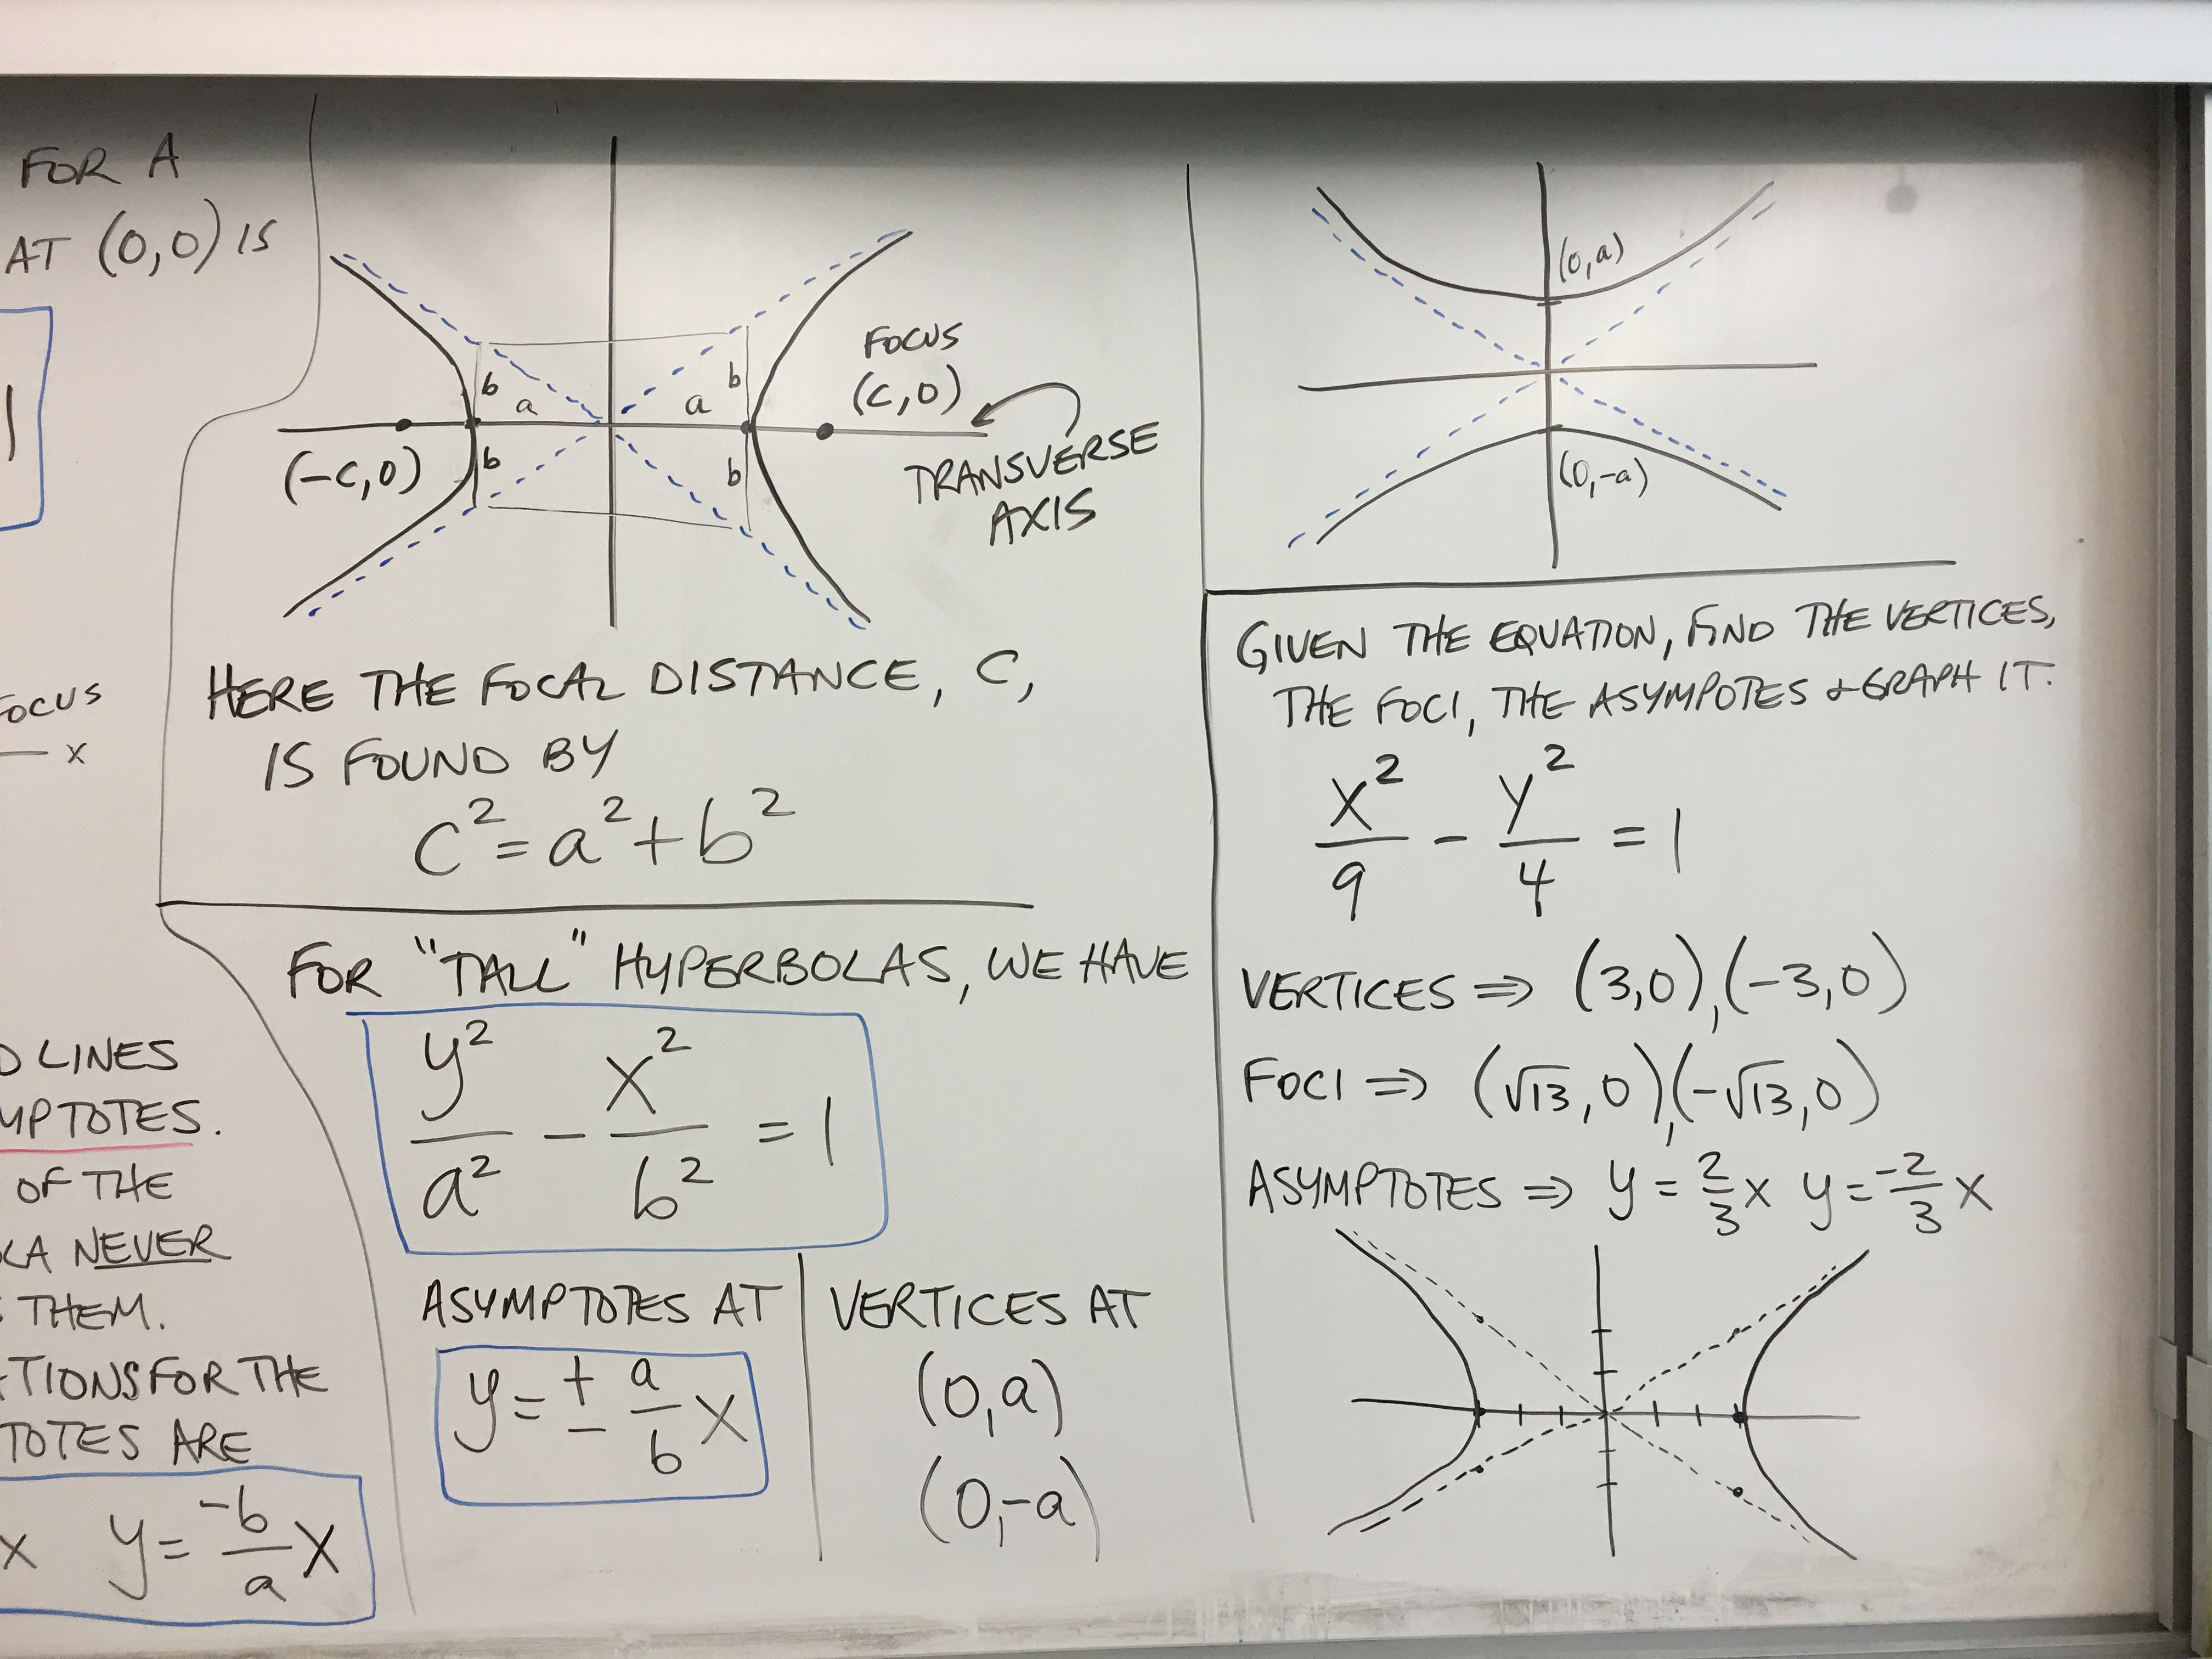 FOR A
AT (0,0) IS
1
FOCUS
x
LINES
OF THE
NEVER
THEM.
FOR THE
ARE
x y = -b/a x
b b
a a
b b
FOCUS
(C,0)
(-C,0)
TRANSVERSE
AXIS
HERE THE FOCAL DISTANCE, C,
IS FOUND BY
C² = a² + b²
FOR "TALL" HYPERBOLAS, WE HAVE
y²/a² - x²/b² = 1
ASYMPTOTES AT
y = ± a/b x
VERTICES AT
(0,a)
(0,-a)
(0,a)
(0,-a)
GIVEN THE EQUATION, FIND THE VERTICES,
THE FOCI, THE ASYMPOTES & GRAPH IT.
x²/9 - y²/4 = 1
VERTICES ⇒ (3,0),(-3,0)
FOCI ⇒ (√13,0),(-√13,0)
ASYMPTOTES ⇒ y = 2/3 x y = -2/3 x